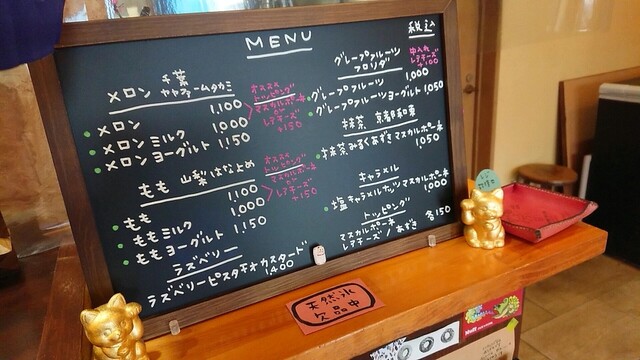 MENU
メロン 千葉 ヤヤファームタカミ
メロン 1,100
メロン ミルク 1,000
メロン ヨーグルト 1,150
オススメ
トッピング
マスカルポーネ
レアチーズ
+150
もも 山梨 はなよめ
もも 1,100
もも ミルク 1,000
もも ヨーグルト 1,150
オススメ
トッピング
マスカルポーネ
レアチーズ
+150
ラズベリー
ラズベリーピスタチオカスタード
1,400
税込
グレープフルーツ
フロリダ
中入れ
レアチーズ
+100
グレープフルーツ 1,000
グレープフルーツヨーグルト 1,050
抹茶 京都和束
抹茶みるくあずきマスカルポーネ
1,050
キャラメル
塩キャラメルナッツマスカルポーネ
1,000
トッピング
マスカルポーネ 各150
レアチーズ / あずき
天然氷
欠品中